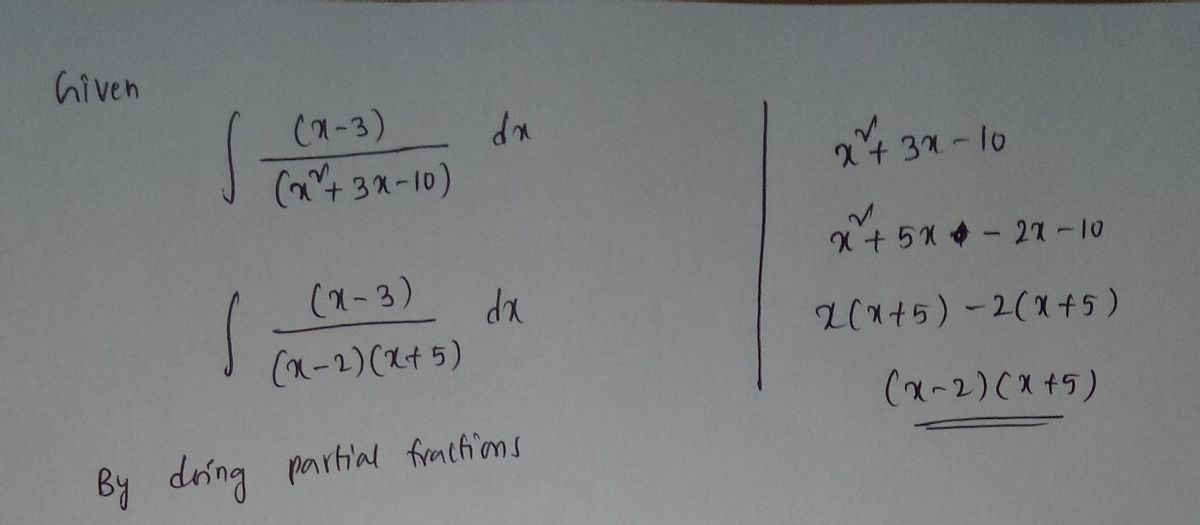 Given
∫ (x-3) / (x²+3x-10) dx
∫ (x-3) / (x-2)(x+5) dx
By doing partial fractions
x²+3x-10
x²+5x - 2x-10
x(x+5) -2(x+5)
(x-2)(x+5)